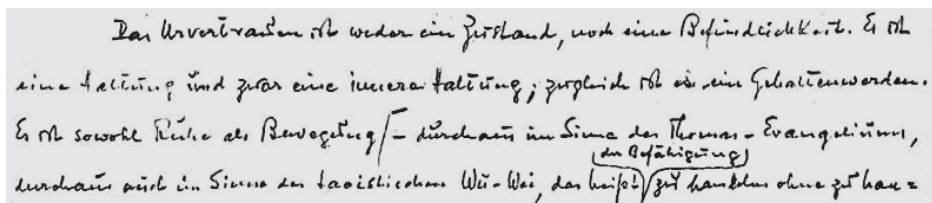 Das Urvertrauen ist weder ein Zustand, noch eine Befindlichkeit. Es ist
eine Haltung und zwar eine innere Haltung; zugleich ist es ein Gehaltenwerden.
Es ist sowohl Ruhe als Bewegung – durchaus im Sinne des Thomas-Evangeliums,
der Befähigung
durchaus auch im Sinne des taoistischen Wu-Wei, das heißt zu handeln ohne zu han=